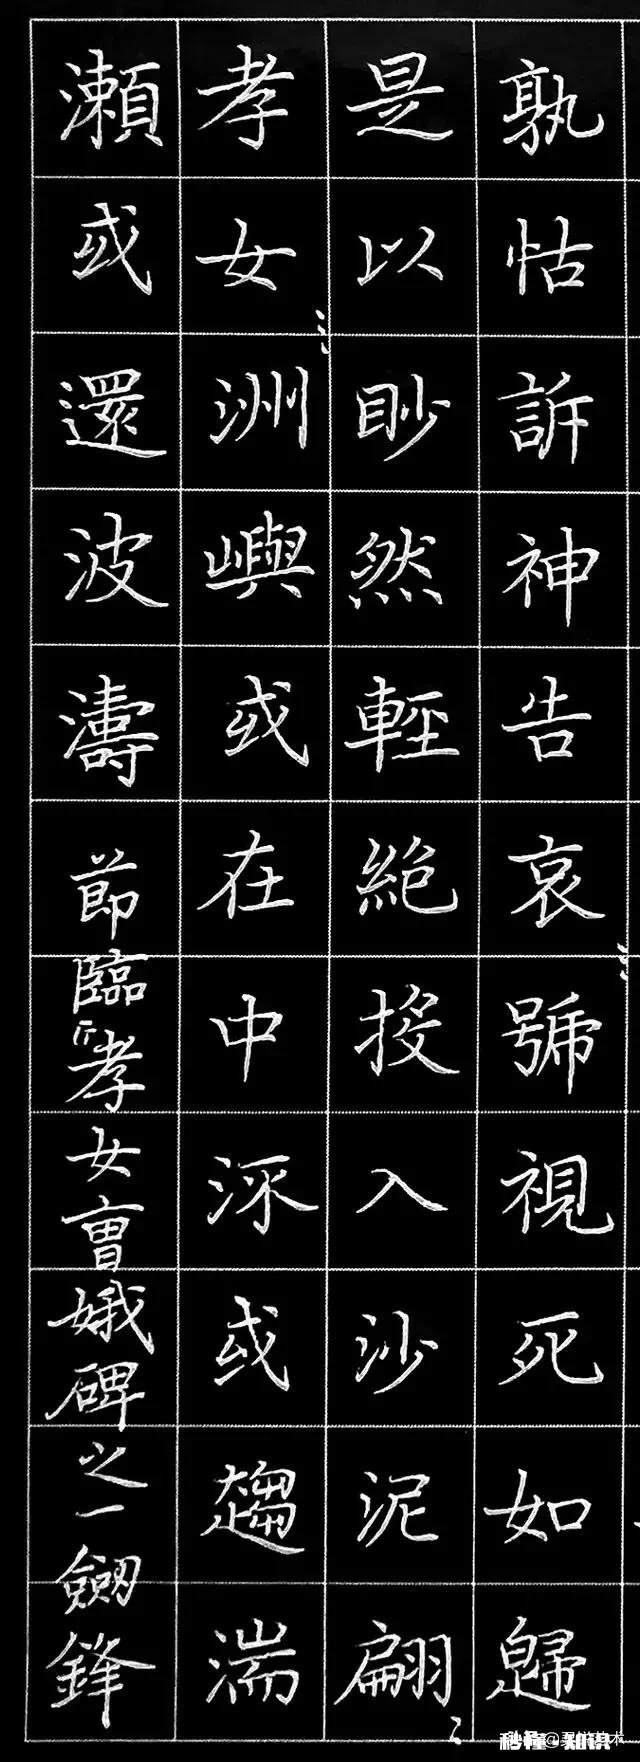 孰怙訴神告哀號視死如歸
是以眇然輕絕投入沙泥翩〻
孝女〻洲嶼或在中流或趨湍
瀨或還波濤節臨孝女曹娥碑之一劍鋒